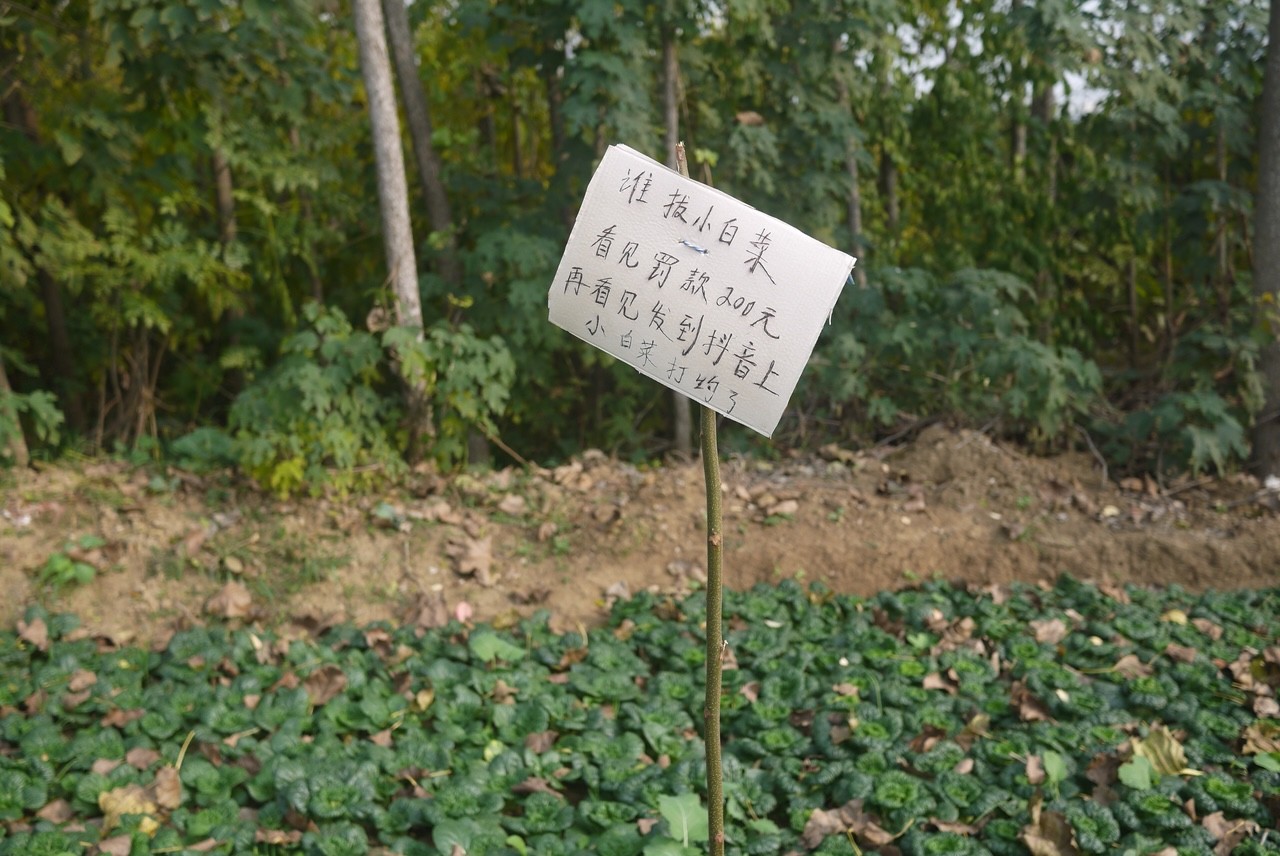 谁拔小白菜
看见罚款200元
再看见发到抖音上
小白菜打药了